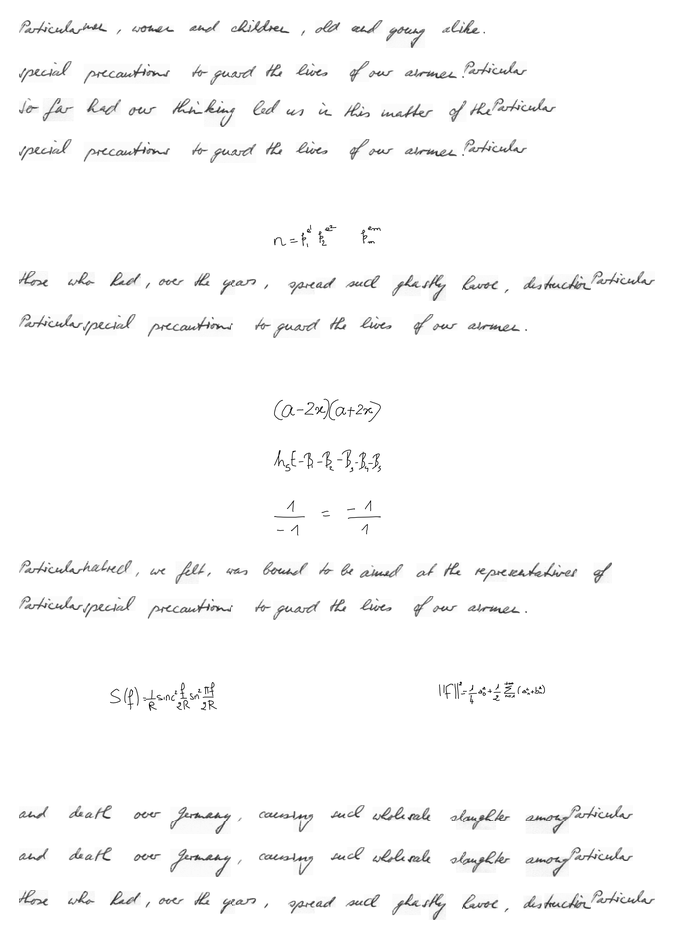 Particular men, women and children, old and young alike.
special precautions to guard the lives of our airmen. Particular
So far had our thinking led us in this matter of the Particular
special precautions to guard the lives of our airmen. Particular
n = p₁^{e1} p₂^{e2} pₘ^{em}
those who had, over the years, spread such ghastly havoc, destruction Particular
Particular special precautions to guard the lives of our airmen.
(a-2x)(a+2x)
h₅E-B₁-B₂-B₃-B₄-B₅
1/-1 = -1/1
Particular hatred, we felt, was bound to be aimed at the representatives of
Particular special precautions to guard the lives of our airmen.
S(f)=1/R sinc² f/2R sin² πf/2R ||F||²=1/4 a₀²+1/2 Σ_{n=1}^{+∞} (aₙ²+bₙ²)
and death over Germany, causing such wholesale slaughter among Particular
and death over Germany, causing such wholesale slaughter among Particular
those who had, over the years, spread such ghastly havoc, destruction Particular